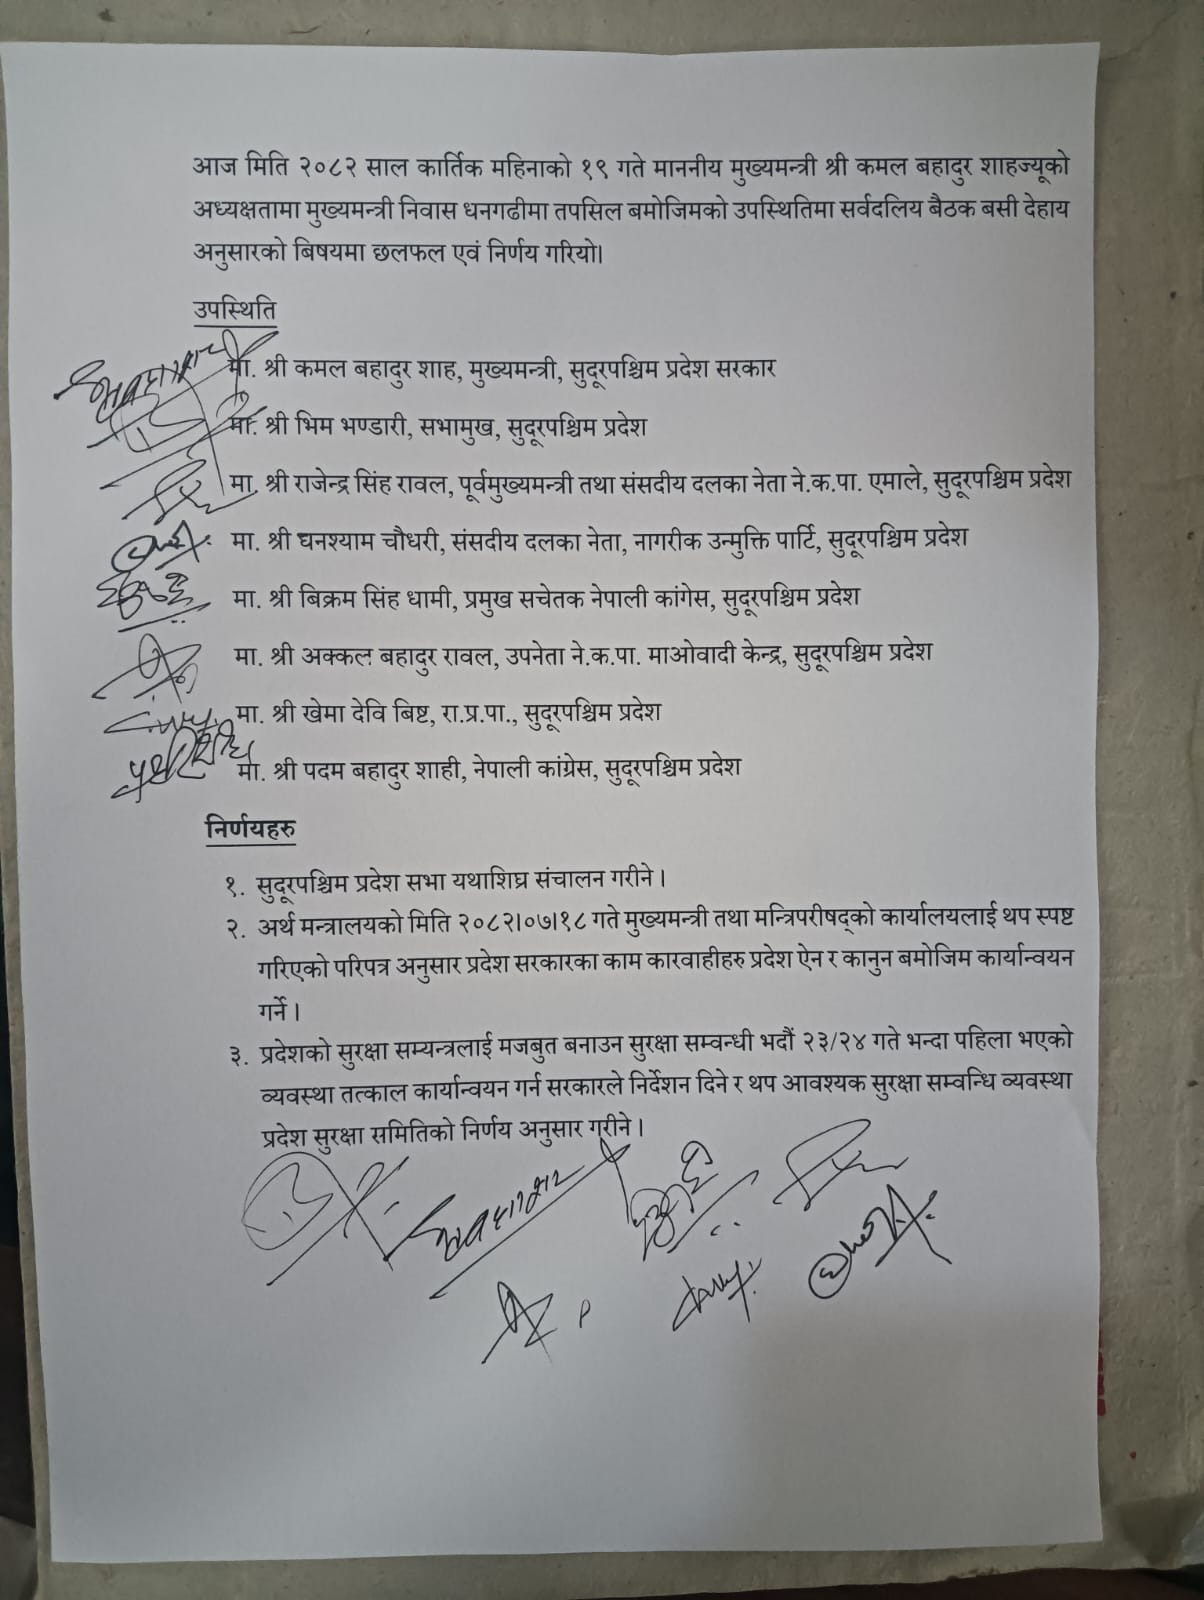 आज मिति २०८२ साल कार्तिक महिनाको १९ गते माननीय मुख्यमन्त्री श्री कमल बहादुर शाहज्यूको
अध्यक्षतामा मुख्यमन्त्री निवास धनगढीमा तपसिल बमोजिमको उपस्थितिमा सर्वदलिय बैठक बसी देहाय
अनुसारको बिषयमा छलफल एवं निर्णय गरियो।
उपस्थिति
मा. श्री कमल बहादुर शाह, मुख्यमन्त्री, सुदूरपश्चिम प्रदेश सरकार
मा. श्री भिम भण्डारी, सभामुख, सुदूरपश्चिम प्रदेश
मा. श्री राजेन्द्र सिंह रावल, पूर्वमुख्यमन्त्री तथा संसदीय दलका नेता ने.क.पा. एमाले, सुदूरपश्चिम प्रदेश
मा. श्री घनश्याम चौधरी, संसदीय दलका नेता, नागरीक उन्मुक्ति पार्टि, सुदूरपश्चिम प्रदेश
मा. श्री बिक्रम सिंह धामी, प्रमुख सचेतक नेपाली कांगेस, सुदूरपश्चिम प्रदेश
मा. श्री अक्कल बहादुर रावल, उपनेता ने.क.पा. माओवादी केन्द्र, सुदूरपश्चिम प्रदेश
मा. श्री खेमा देवि बिष्ट, रा.प्र.पा., सुदूरपश्चिम प्रदेश
मा. श्री पदम बहादुर शाही, नेपाली कांग्रेस, सुदूरपश्चिम प्रदेश
निर्णयहरु
१. सुदूरपश्चिम प्रदेश सभा यथाशिघ्र संचालन गरीने ।
२. अर्थ मन्त्रालयको मिति २०८२।०७।१८ गते मुख्यमन्त्री तथा मन्त्रिपरीषद्को कार्यालयलाई थप स्पष्ट
गरिएको परिपत्र अनुसार प्रदेश सरकारका काम कारवाहीहरु प्रदेश ऐन र कानुन बमोजिम कार्यान्वयन
गर्ने ।
३. प्रदेशको सुरक्षा सम्यन्त्रलाई मजबुत बनाउन सुरक्षा सम्वन्धी भदौं २३/२४ गते भन्दा पहिला भएको
व्यवस्था तत्काल कार्यान्वयन गर्न सरकारले निर्देशन दिने र थप आवश्यक सुरक्षा सम्वन्धि व्यवस्था
प्रदेश सुरक्षा समितिको निर्णय अनुसार गरीने ।